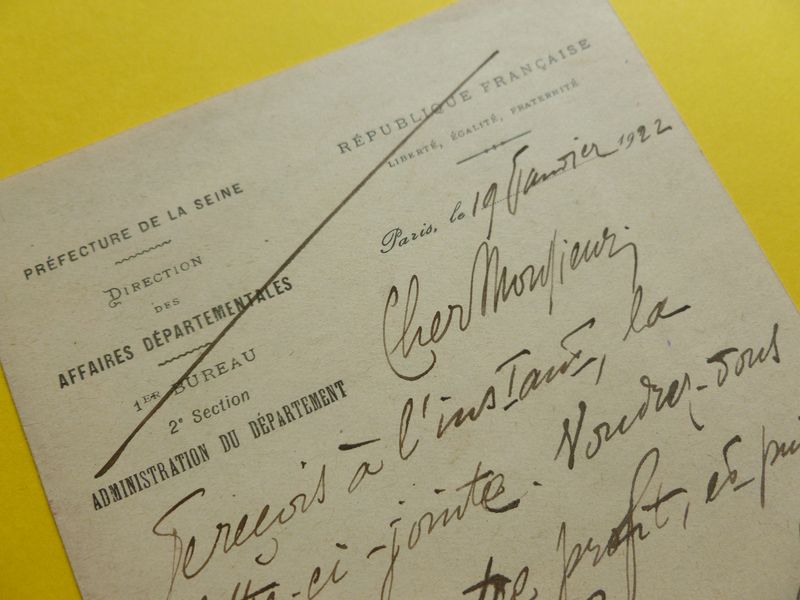 RÉPUBLIQUE FRANÇAISE
LIBERTÉ, ÉGALITÉ, FRATERNITÉ
PRÉFECTURE DE LA SEINE
DIRECTION
DES
AFFAIRES DÉPARTEMENTALES
1ER BUREAU
2e Section
ADMINISTRATION DU DÉPARTEMENT
Paris, le 19 Janvier 1922
Cher Monsieur,
Je reçois à l'instant, la
ci-jointe. Voudrez-vous
profit, et